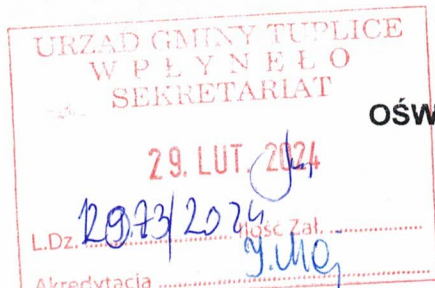 URZĄD GMINY TUPLICE
WPŁYNEŁO
SEKRETARIAT
OŚW
29. LUT. 2024
L.Dz. 12973/2024 Ilość Zał.
Akredytacja